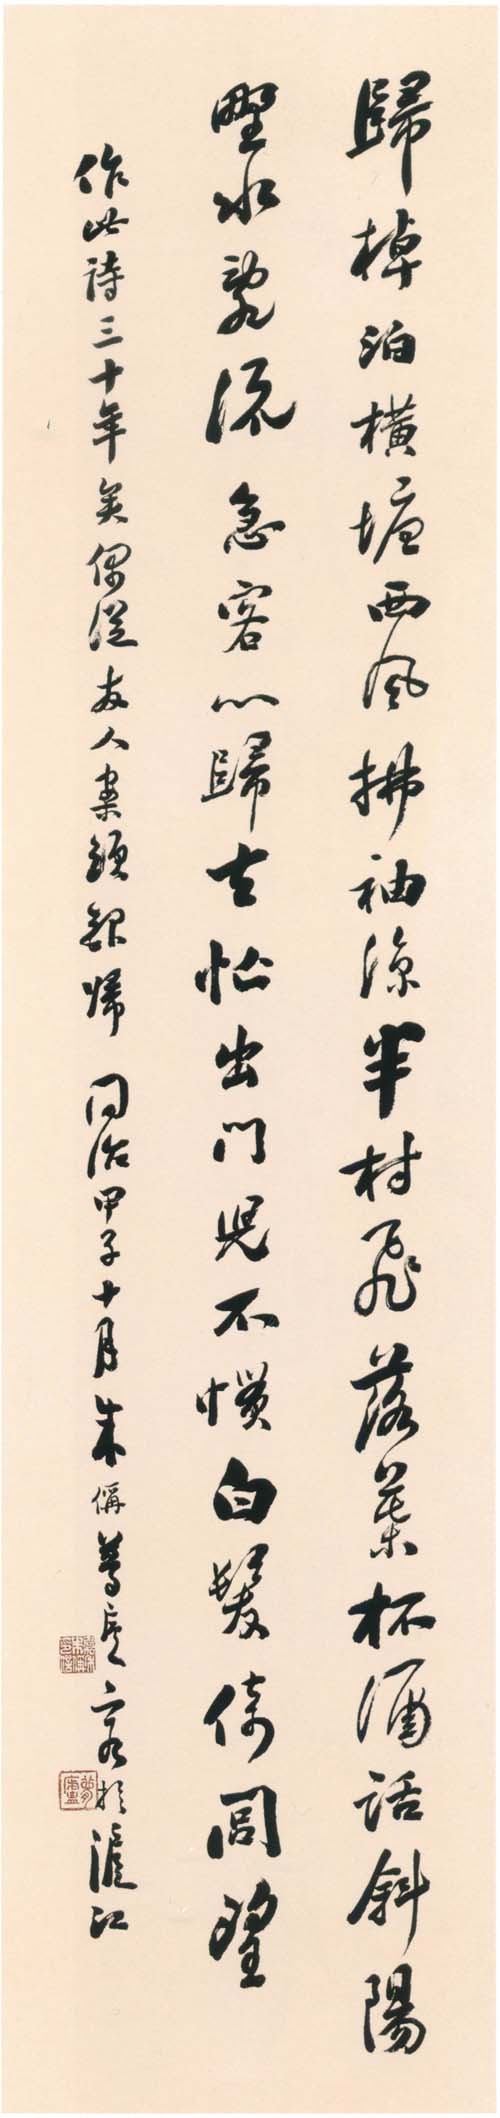 歸棹泊橫塘西風拂袖涼半村飛落葉杯酒話斜陽
野水亂流急客心歸去忙出門兒不慣白髮倚閭望
作此詩三十年矣偶從友人案頭錄歸 同治甲子十月朱偁夢廬客於滬江